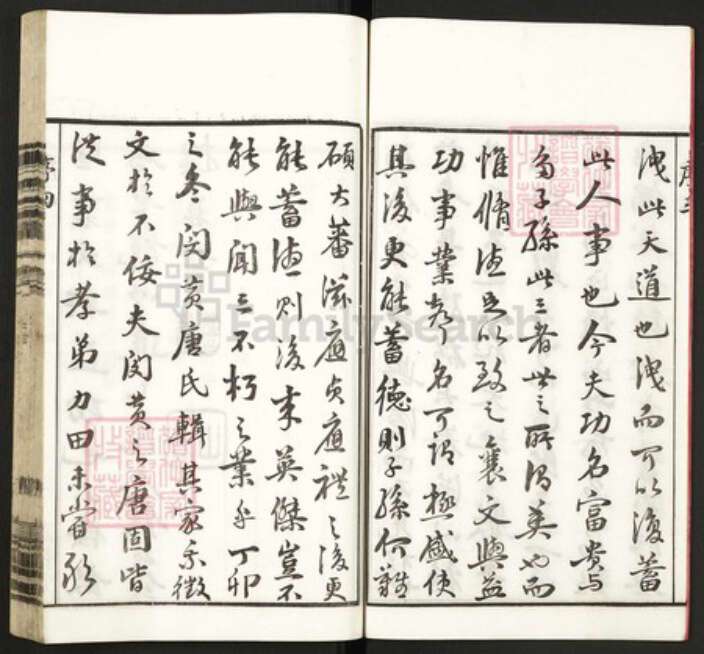 序三
洩此天道也洩而可以復蓄
此人事也今夫功名富貴与
子孫此三者世之所謂美也而
惟脩德足以致之襄文與益
功事業聲名可謂極盛使
其後更能蓄德則子孫何難
碩大蕃滋應貞應禮之後更
能蓄德則後來英傑豈不
能與聞三不朽之業乎丁卯
之冬闵黄唐氏輯其家乘徵
文於不佞夫闵黄之唐固皆
從事於孝弟力田未嘗
序四
FamilySearch